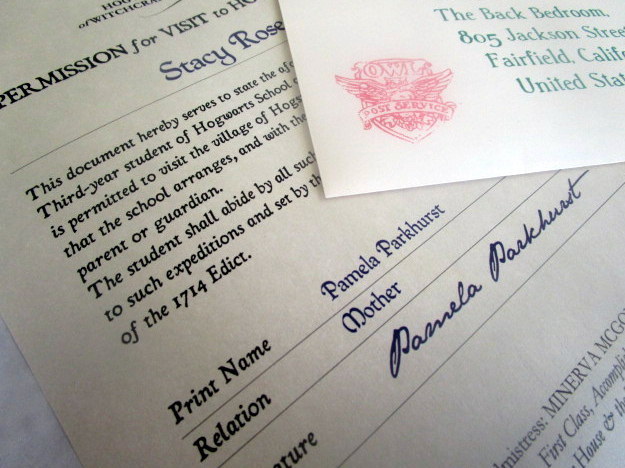 of WITCHCRA
PERMISSION for VISIT to HO
Stacy Rose
This document hereby serves to state the afo
Third-year student of Hogwarts School
is permitted to visit the village of Hogs
that the school arranges, and with the
parent or guardian.
The student shall abide by all such
to such expeditions and set by th
of the 1714 Edict.
Print Name Pamela Parkhurst
Relation Mother
ature Pamela Parkhurst
dmistress: MINERVA MCGO
First Class, Accomplis
House & the
The Back Bedroom,
805 Jackson Stree
Fairfield, Califo
United Stat
OWL
POST SERVICE